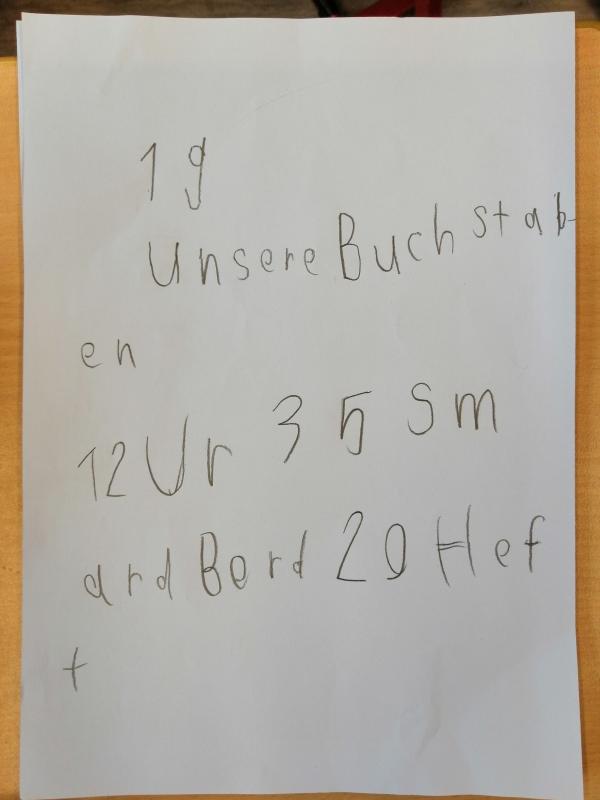 1 g
Unsere Buchstab-
en
12 Ur 35 Sm
ard Bord 20 Hef
t